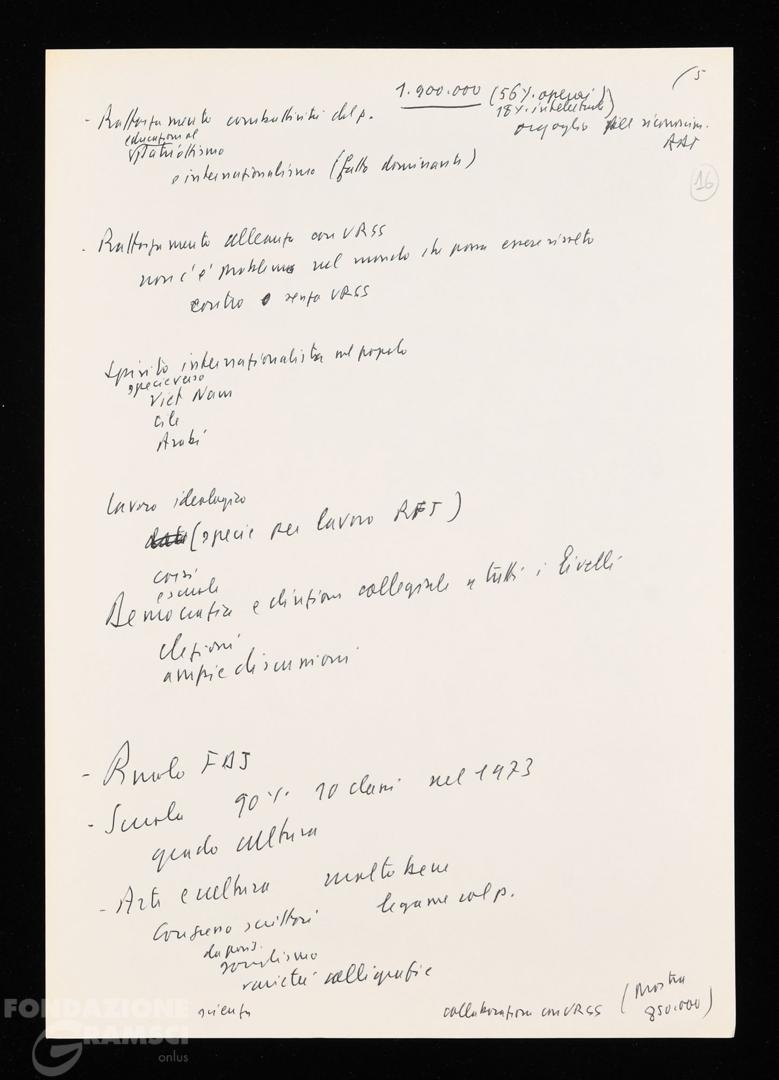 5
1.900.000 (56% operai)
18% intellettuali)
- Rafforzamento combattività del p.
orgoglio riconoscim.
educazion al
patriottismo
e internazionalismo (fatto dominante)
16
- Rafforzamento alleanza con URSS
non c'è problema nel mondo che possa essere risolto
contro o senza URSS
Spirito internazionalista nel popolo
specie verso
Viet Nam
Cile
Arabi
Lavoro ideologico
(specie per lavoro RFT)
corsi
e scuole
Democrazia e direzione collegiale a tutti i livelli
elezioni
ampie discussioni
- Ruolo FDJ
- Scuola 90% 10 classi nel 1973
grado cultura
- Arte e cultura molto bene
Congresso scrittori legame col p.
da pos.
realismo
varietà calligrafie
scienza
collaborazione con URSS (mostra
850.000)
FONDAZIONE
GRAMSCI
onlus